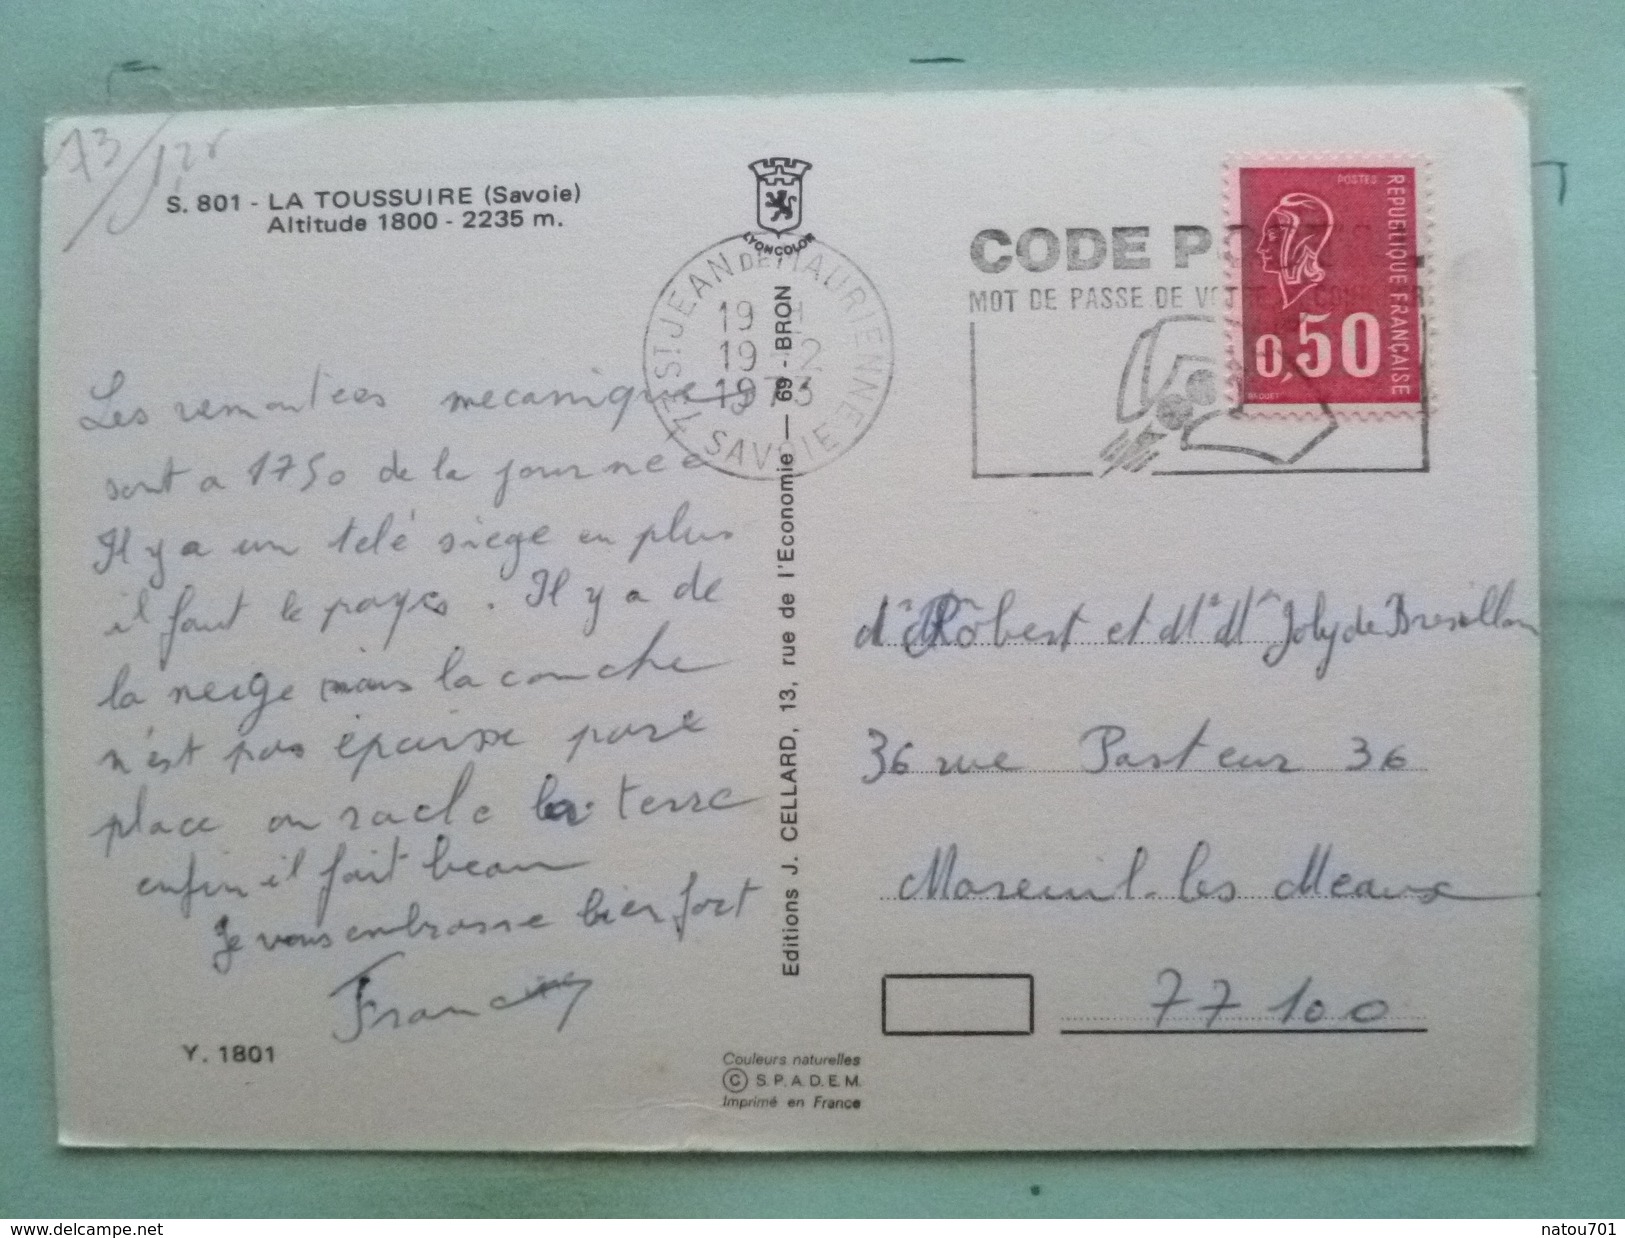 73/
S. 801 - LA TOUSSUIRE (Savoie)
Altitude 1800 - 2235 m.
LYONCOLOR
73 ST JEAN DE MAURIENNE
19 H
19 - 12
1973
SAVOIE
CODE P
MOT DE PASSE DE V
POSTES
REPUBLIQUE FRANÇAISE
0,50
BEQUET
Les remontées mecaniques
sont a 1750 de la journée
Il y a un télé siege en plus
il faut le payes. Il y a de
la neige mais la couche
n'est pas épaisse pare
place on racle la terre
enfin il fait beau
Je vous embrasse bien fort
Y. 1801
Editions J. CELLARD, 13, rue de l'Economie — 69 - BRON
Couleurs naturelles
© S.P.A.D.E.M.
Imprimé en France
Robert et Mr Mme Joly de Bresillon
36 rue Pasteur 36
Mareuil-les Meaux
77100
www.delcampe.net
natou701